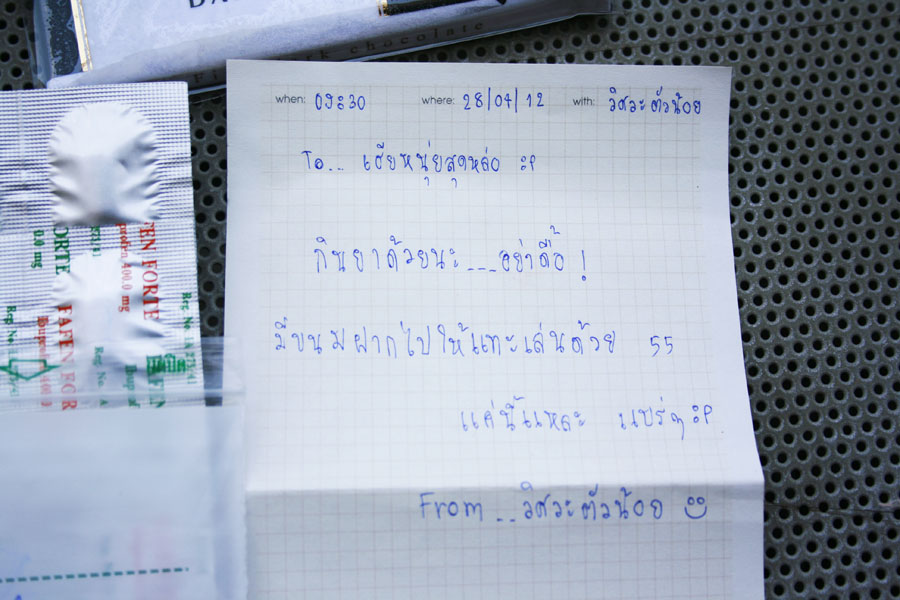 chocolate
when: 09:30 where: 28/04/12 with: วิศวะตัวน้อย
To... เฮียหนุ่ยสุดหล่อ :P
กินยาด้วยนะ....อย่าดื้อ !
มีขนมฝากไปให้แทะเล่นด้วย 55
แค่นี้แหละ แบร่ๆ :P
From...วิศวะตัวน้อย
FEN FORTE
400.0 mg
0.0 mg
ORTE FAFEN FOR